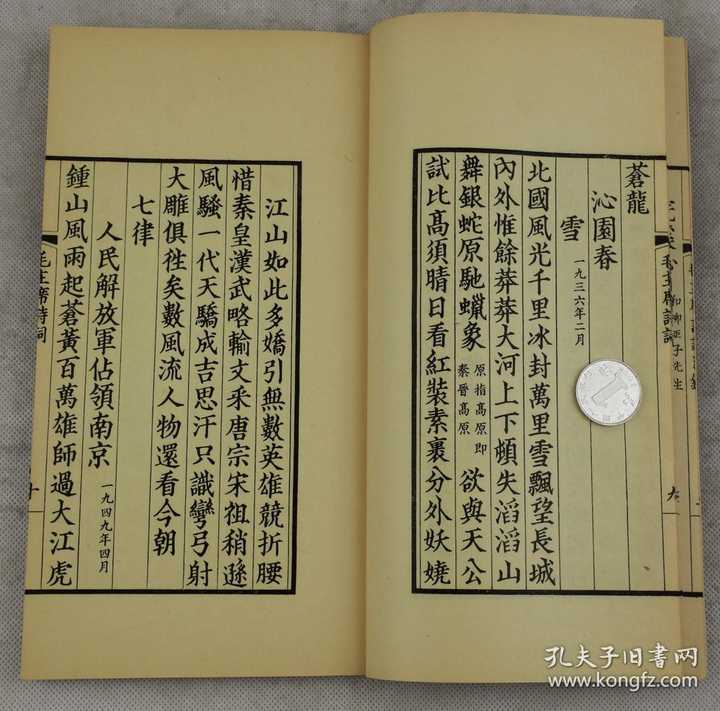 蒼龍
沁園春
雪
一九三六年二月
北國風光千里冰封萬里雪飄望長城
內外惟餘莽莽大河上下頓失滔滔山
舞銀蛇原馳蠟象
原指高原即
秦晉高原
欲與天公
試比高須晴日看紅裝素裹分外妖嬈
江山如此多嬌引無數英雄競折腰
惜秦皇漢武略輸文采唐宗宋祖稍遜
風騷一代天驕成吉思汗只識彎弓射
大雕俱往矣數風流人物還看今朝
七律
人民解放軍佔領南京
一九四九年四月
鍾山風雨起蒼黃百萬雄師過大江虎
毛主席詩詞
十
毛主席詩詞
九
和柳亞子先生
孔夫子旧书网
www.kongfz.com